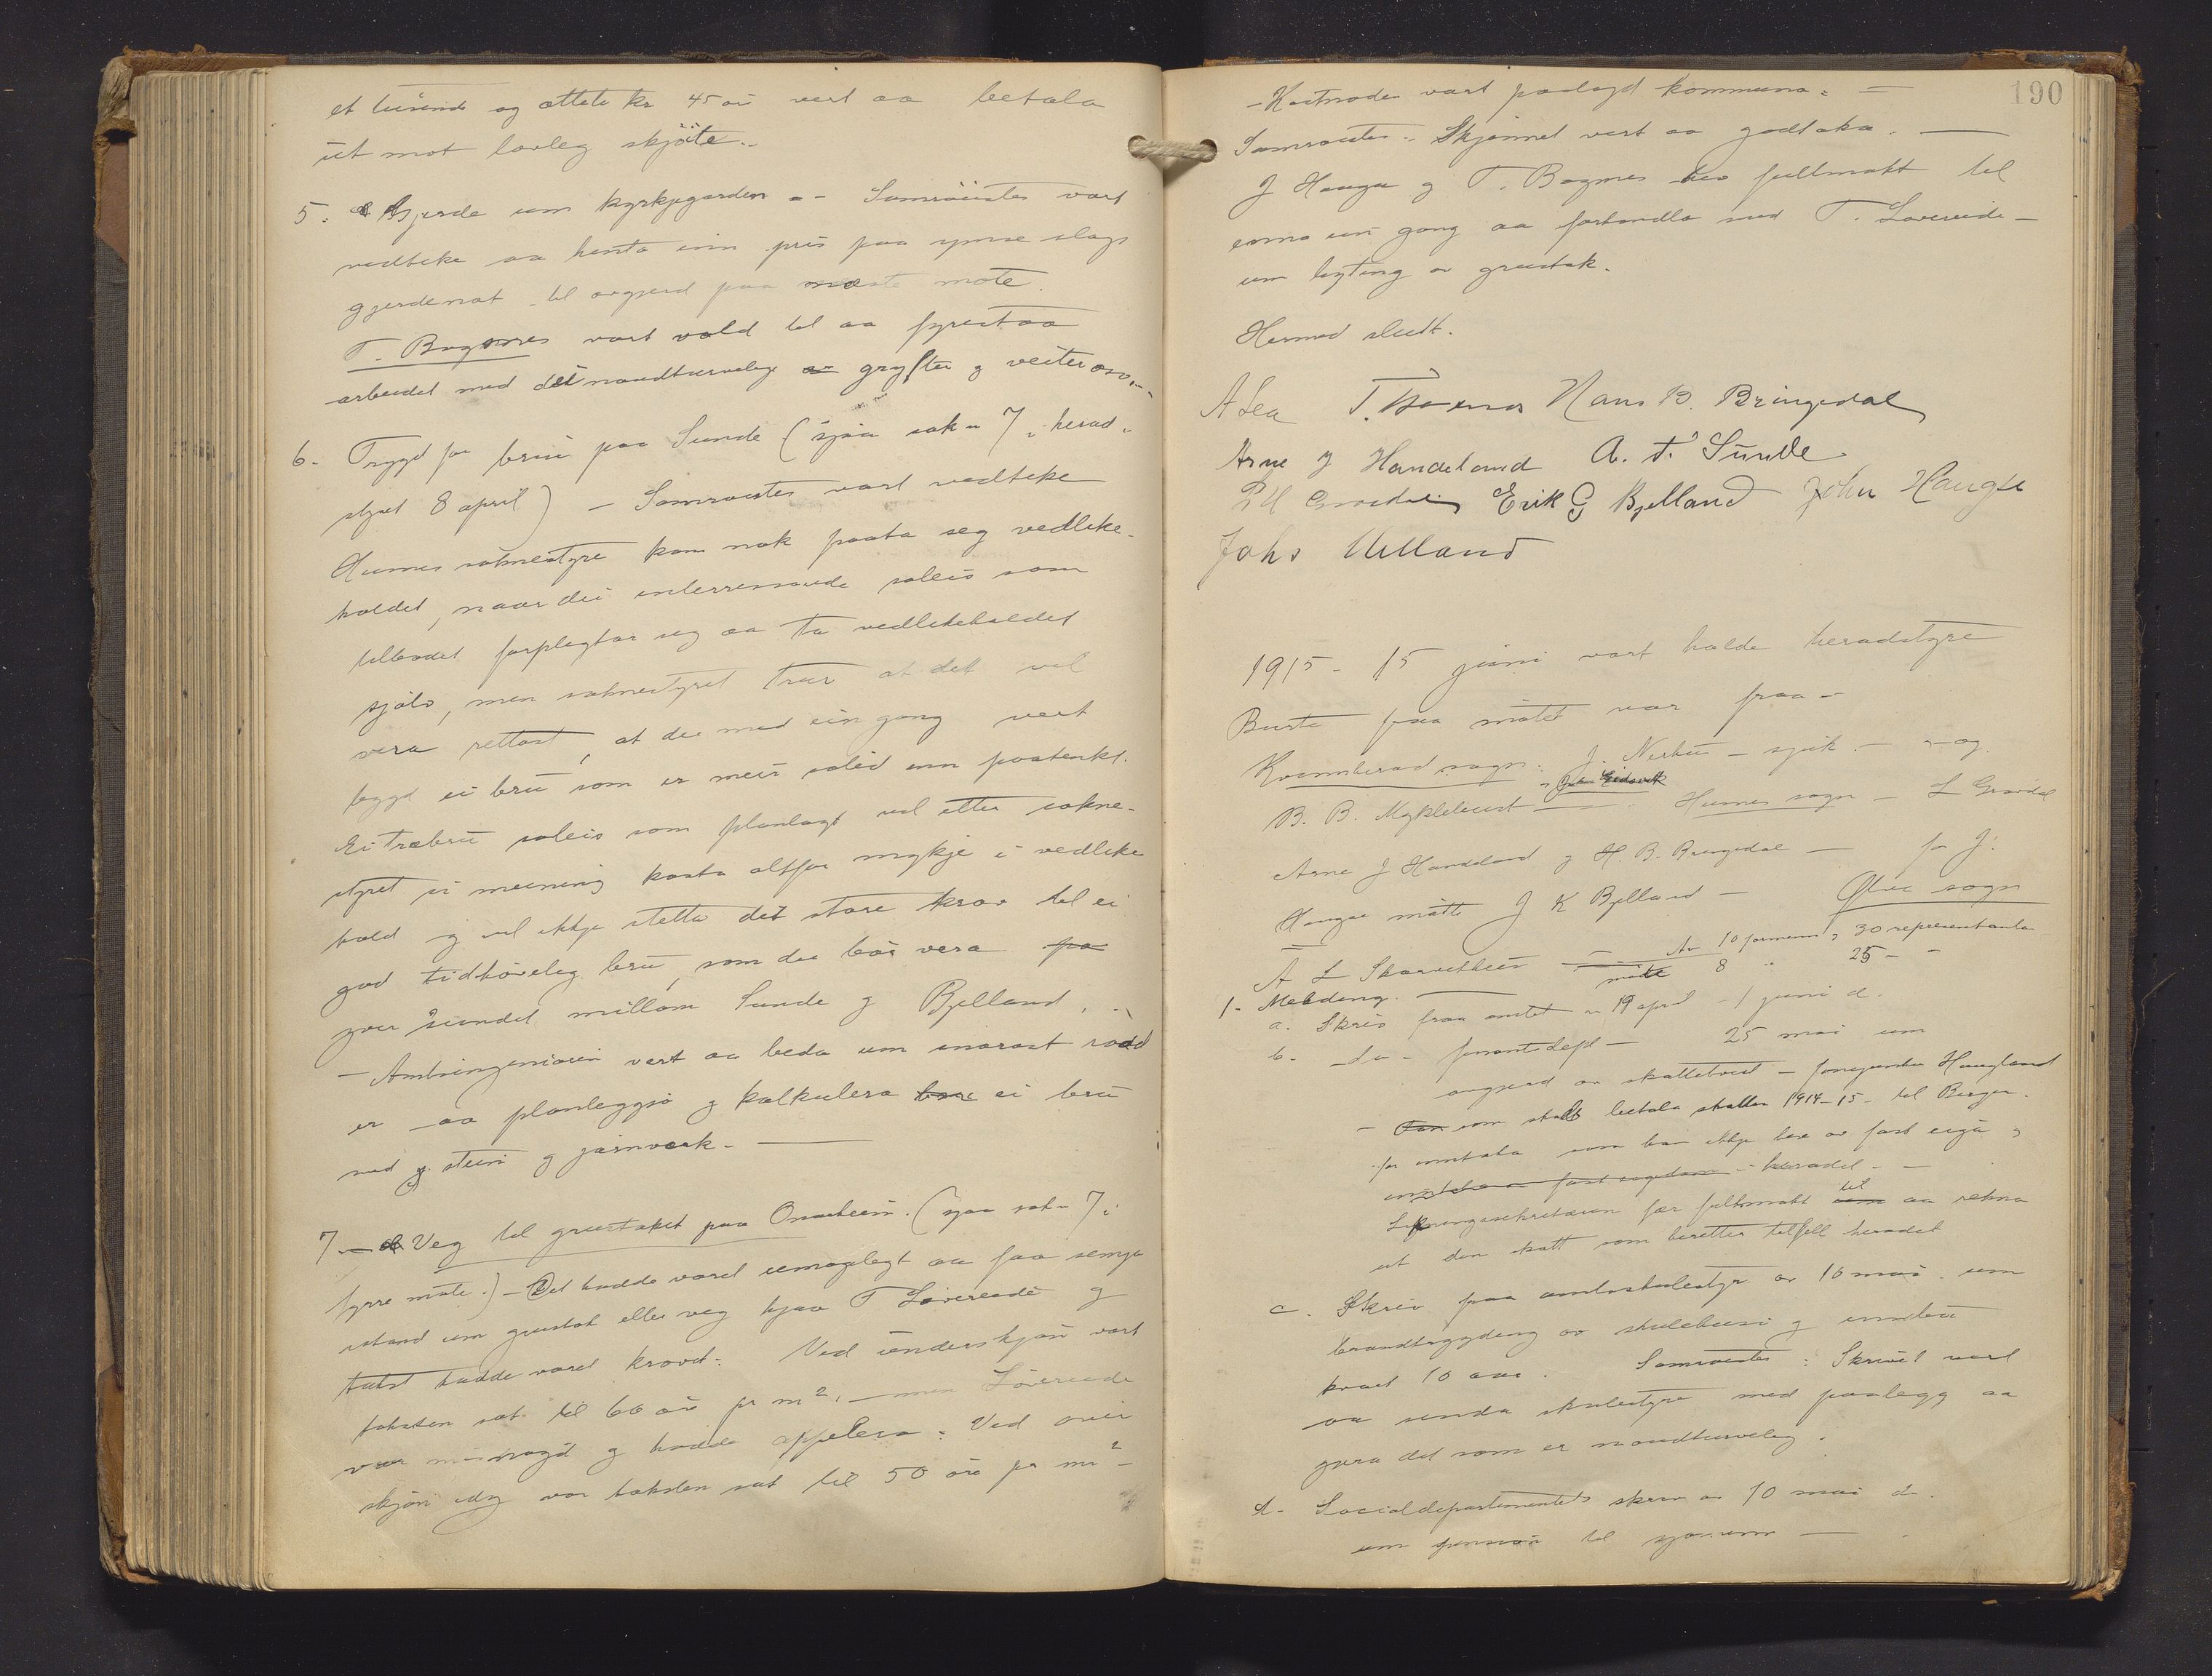 et tusund og otteti kr 45 øri vert aa betala
ut mot lovleg skjöte.
5. Gjerde um kyrkjegarden - Samröistes vart
vedteke aa henta inn pris paa ymse slags
gjerdenat til avgjerd paa næste møte.
T. Bagnnes vart vald til aa fyrestaa
arbeidet med dei naudturvelege grøfter og veiter osv.
6. Trygd for bru paa Sunde (sjaa sak 7 i herad-
styret 8 april) - Samrøistes vart vedteke
Husnes soknestyre kan nok paata seg vedlike-
holdet, naar dei interressande soleis som
tilbodet forplegtar seg aa ta vedlikeholdet
sjølv, men soknestyret trur at det vil
vera rettast, at de med ein gong vert
bygd ei bru som er meir solid enn paatenkt.
Ei træbru soleis som planlagt vil etter sokne-
styret si meining kosta altfor mykje i vedlike
hald og vil ikkje stetta dei store krav til ei
god tidhøveleg bru, som de bør vera
yver sundet millom Sunde og Bjelland.
- Amtsingeniøren vert aa beda um snarast raad
er aa planleggja og kalkulera ei bru
med stein og jarnverk.
7 - Veg til grustaket paa Onarheim. (sjaa sak 7 i
fyrre møte.) - Det hadde voret umogelegt aa faa semja
istand um grustak eller veg hjaa T Løvereide og
takst hadde voret kravd. Ved underskjøn vart
taksten sat til 66 øri pr m², - men Løvereide
var misnøgd og hadde appelera. Ved over
skjøn idag var taksten sat til 50 øre pr m² -
190
- Kostnaden vart paalagd kommuna. -
Samrøistes: Skjønnet vert aa godtaka.
J Hauge og T. Bagnes hev fullmakt til
enno ein gong aa forhandla med T. Løvereide -
um byting av grustak.
Hermed slutt.
A Lea T. Bagnes Hans B. Bringedal
Arne J Handeland A. T. Sunde
Erik G Bjelland John Haugse
Johs Ulland
1915 - 15 juni vart halde heradstyre
Burte fraa møtet var fraa -
Kvinnherad sogn: J. Nerhus - sjuk - og
B. B. Myklebust Husnes sogn - L Gravdal
Arne J Handeland og H. B. Bringedal - for J.
Haugse møtte J K Bjelland - Ølve sogn
A L Skarvatun Av 10 formenn og 30 representanta
møtte 8 " 25 - "
1 - Melding.
a. Skriv fraa amtet 19 april - 1 juni d.
b. do - finantsdept - 25 mai um
avgjerd av skattetvist - Haugland
- som skal betala skatten 1914-15 - til Bergen.
for inntekta som han ikkje hev av fast eiga og
heradet -
Likningssekretæren fær fullmakt til aa rekna
ut den skatt som beretter tilfell heradet
c. Skriv fraa amtsskulestyr av 16 mai um
brandtrygding av skulehusi og innbu
kvart 10 aar. Samrøistes: Skrivet vert
aa senda skulestyre med paalegg aa
gjera det som er naudturveleg.
d - Socialdepartementets skriv av 10 mai d.
um til